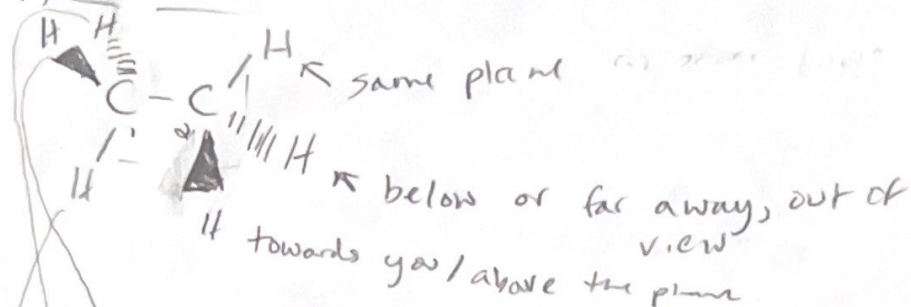 H H
H same plane
C - C
H
H below or far away, out of
view
H towards you/above the plane